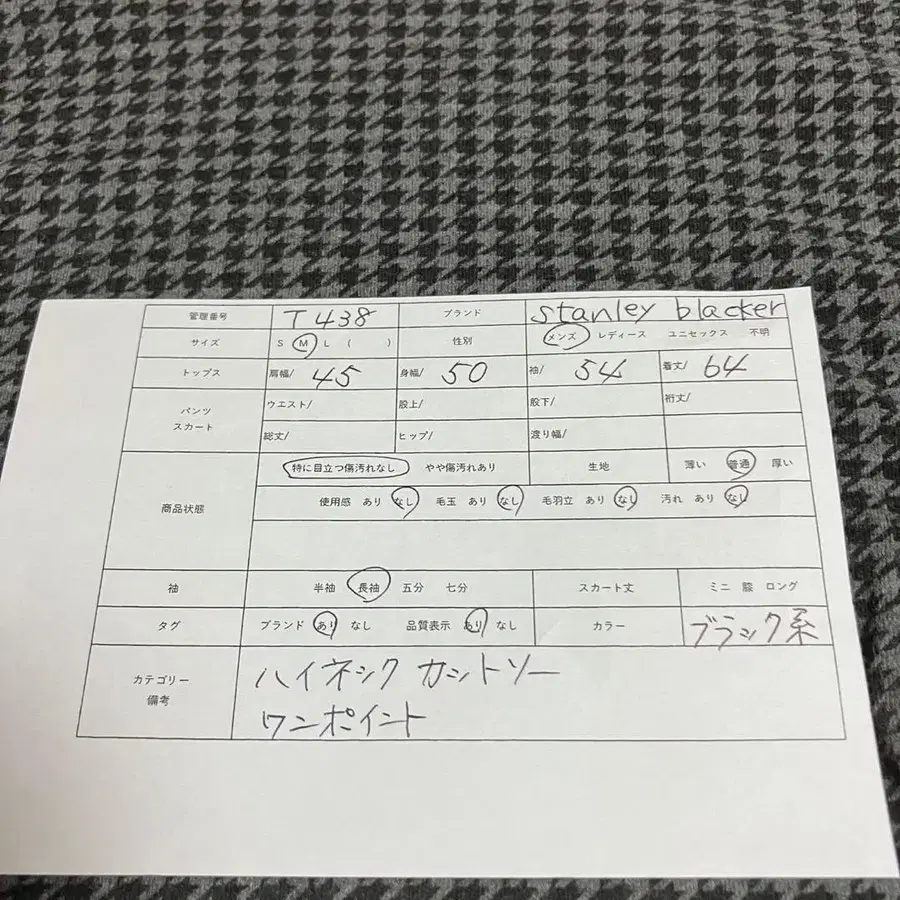 管理番号 T438 ブランド stanley blacker
サイズ S M L ( ) 性別 メンズ レディース ユニセックス 不明
トップス 肩幅/ 45 身幅/ 50 袖/ 54 着丈/ 64
パンツ スカート ウエスト/ 股上/ 股下/ 裄丈/
総丈/ ヒップ/ 渡り幅/
商品状態 特に目立つ傷汚れなし やや傷汚れあり 生地 薄い 普通 厚い
使用感 あり なし 毛玉 あり なし 毛羽立 あり なし 汚れ あり なし
袖 半袖 長袖 五分 七分 スカート丈 ミニ 膝 ロング
タグ ブランド あり なし 品質表示 あり なし カラー ブラック系
カテゴリー 備考 ハイネック カットソー
ワンポイント